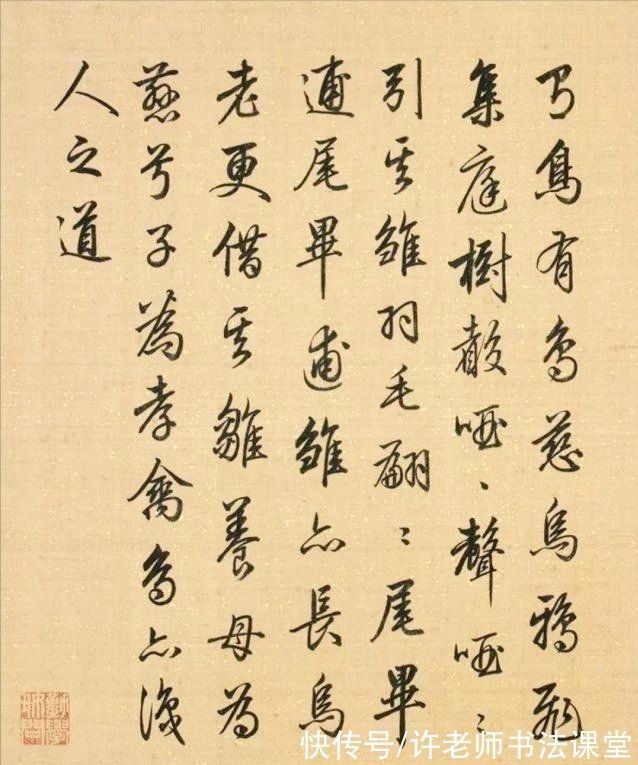 有鳥有鳥慈烏鴉飛
集庭樹聲啞〻聲啞〻
引其雛羽毛翩〻尾畢
逋尾畢逋雛亦長烏
老更借其雛養母為
慈兮子為孝禽鳥亦識
人之道
快传号/许老师书法课堂